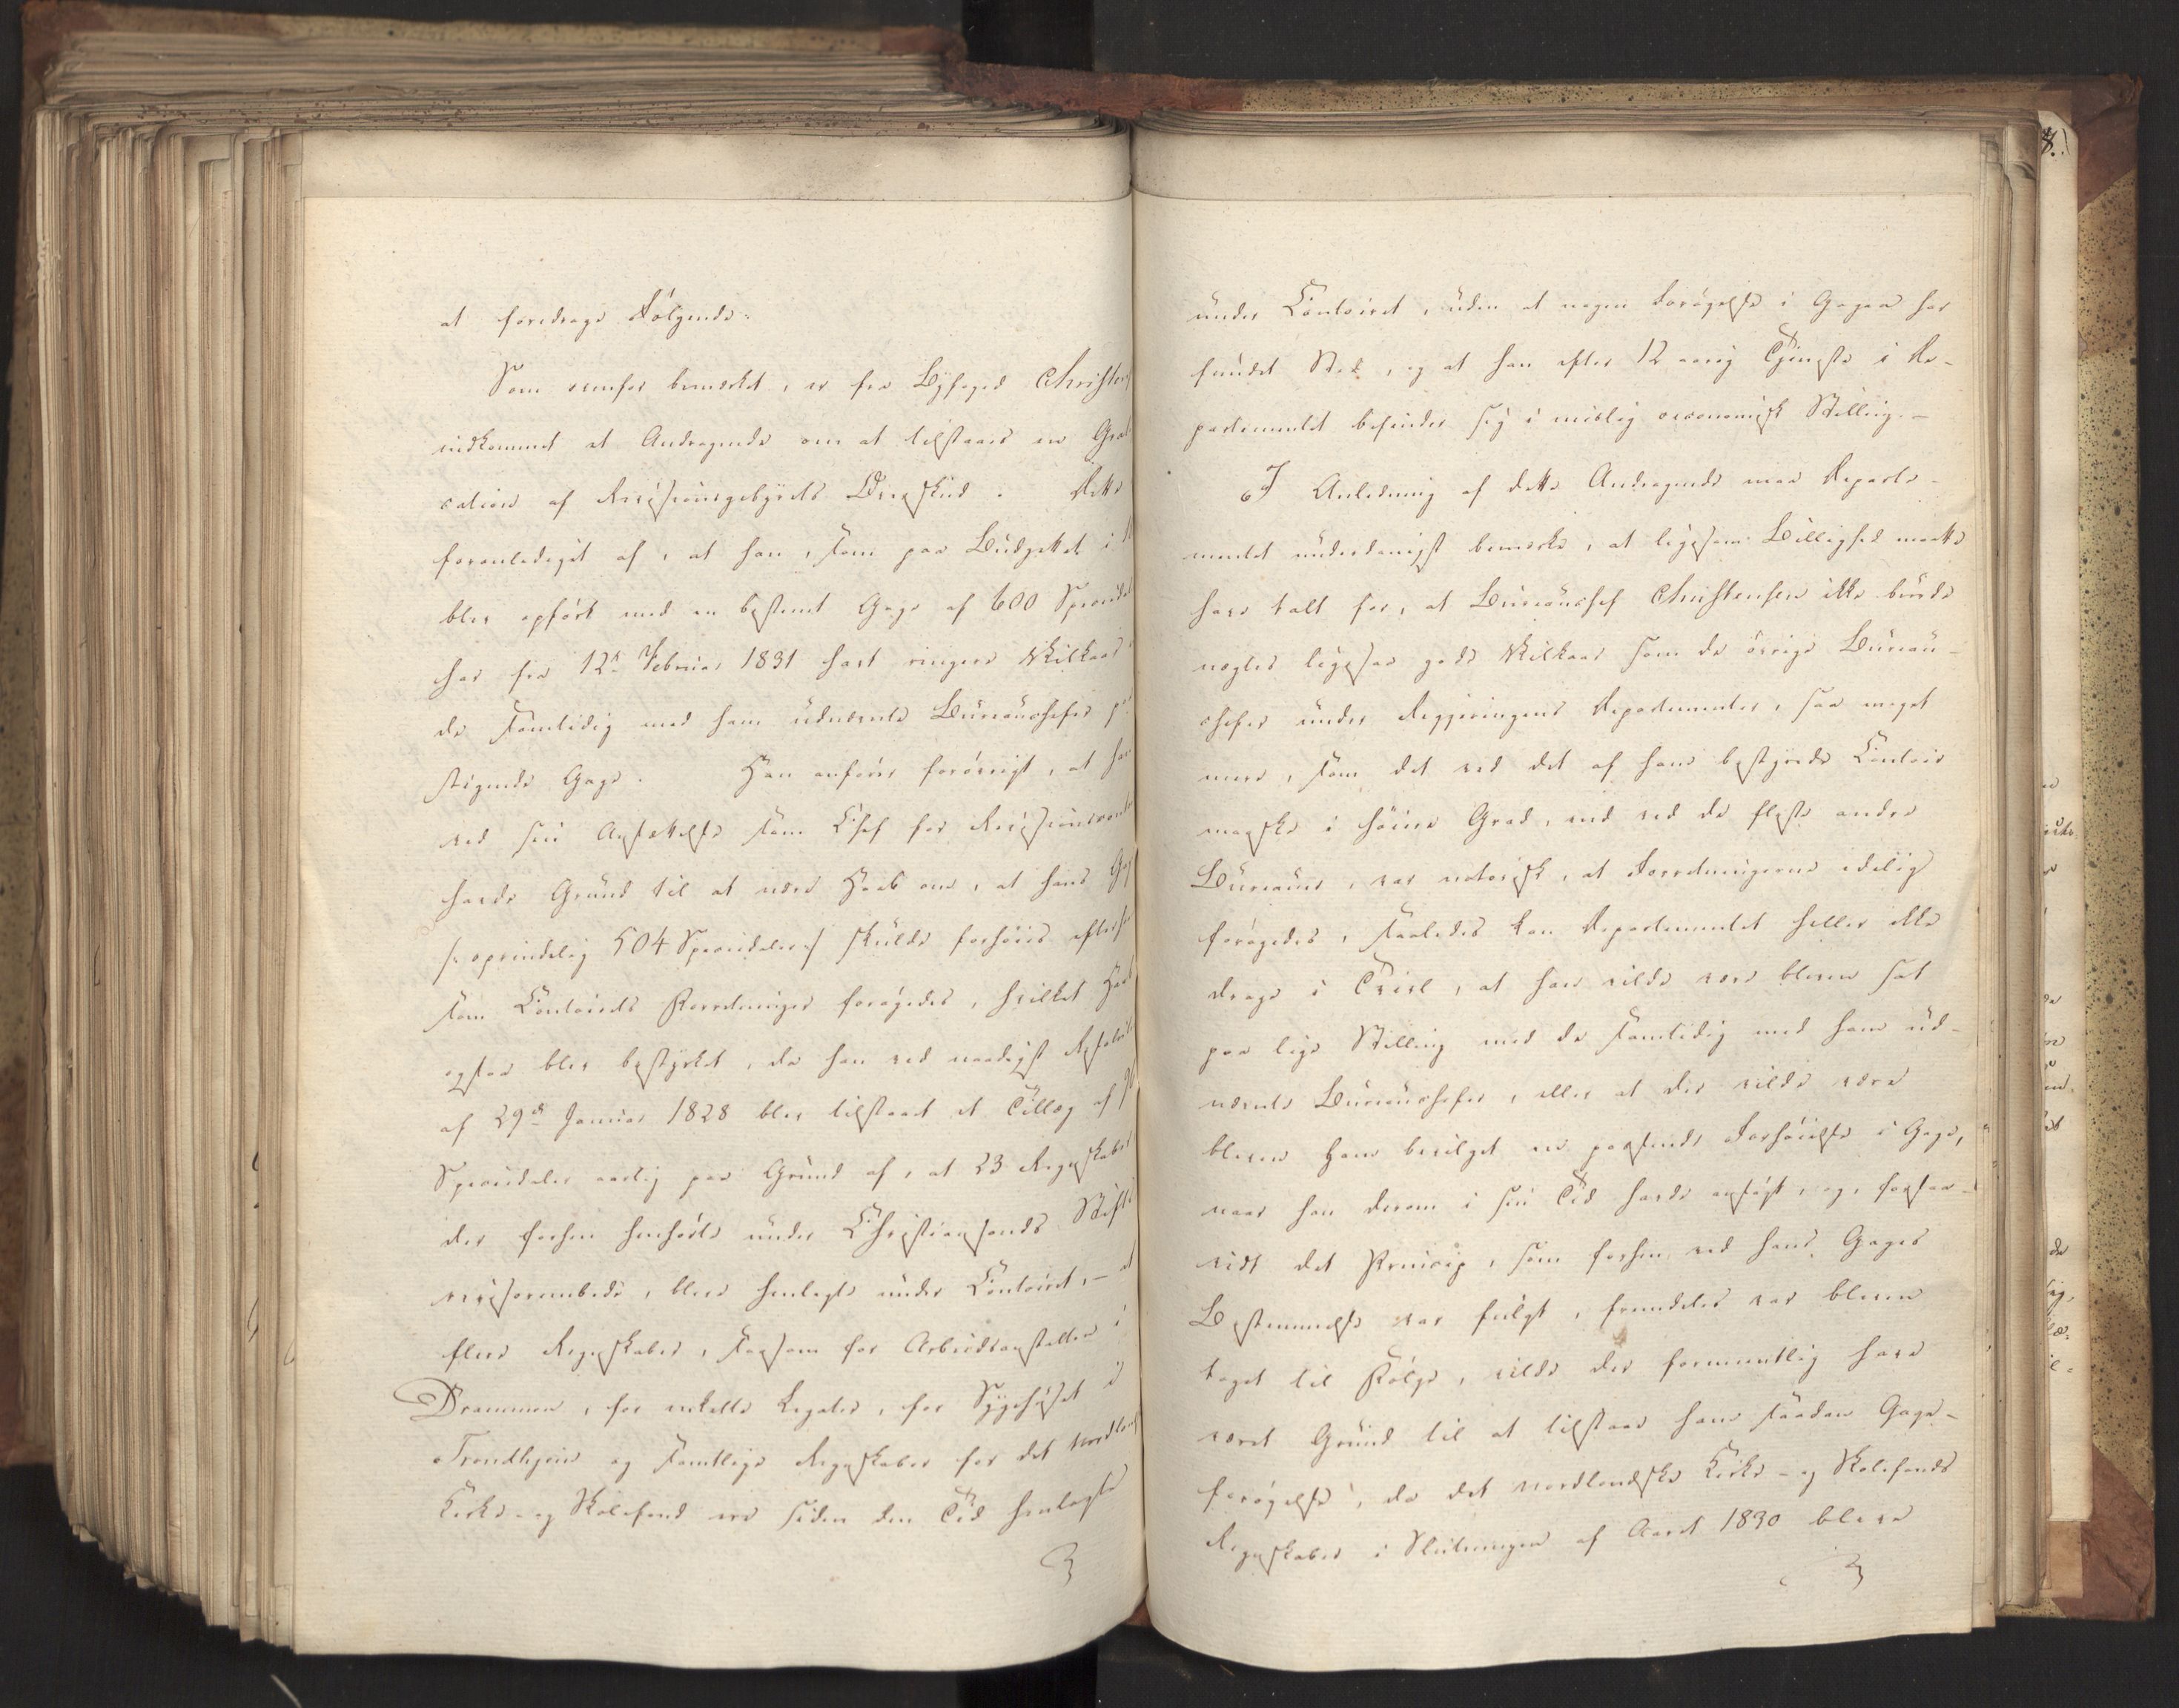 at foredrage Følgende:
Som ovenfor bemærket, er fra Byfoged Christen
indkommet et Andragende om at tilstaaes en Grati
cation af Revisionsgebyrets Overskud. Dette
foranlediget af, at han, som paa Budgettet i
blev opført med en bestemt Gage af 600 Speciedal
har fra 12te Februar 1831 havt ringere Vilkaar
de samtidig med ham udnævnte Bureauchefer p
stigende Gage. Han anfører forøvrigt, at han
ved sin Ansættelse som Chef for Revisionscontoi
havde Grund til at nære Haab om, at hans Gag
/: oprindelig 504 Speciedaler :/ skulde forhøies efterso
som Contoirets Forretninger forøgedes, hvilket Haab
ogsaa blev bestyrket, da han ved naadigst Resoluti
af 29de Januar 1828 blev tilstaaet et Tillæg af 96
Speciedaler aarlig paa Grund af, at 23 Regnskaber
der forhen henhørte under Christiansands Stifts
revisorembede, bleve henlagte under Contoiret, – at
flere Regnskaber, saasom for Arbeidsanstalten i
Drammen, for enkelte Legater, for Sygehuset i
Trondhjem og samtlige Regnskaber for det nordland
Kirke- og Skolefond ere siden den Tid henlagte
under Contoiret, uden at nogen Forøgelse i Gagen har
fundet Sted, og at han efter 12 aarig Tjeneste i De-
partementet befinder sig i mislig oeconomisk Stilling. –
I Anledning af dette Andragende maa Departe-
mentet underdanigst bemærke, at ligesom Billighed maatte
have talt for, at Bureauchef Christensen ikke burde
nægtes ligesaa gode Vilkaar som de øvrige Bureau-
chefer under Regjeringens Departementer, saa meget
mere, som det ved det af ham bestyrede Contoir
maaske i høiere Grad, end ved de fleste andre
Bureauer, var notorisk, at Forretningerne idelig
forøgedes, saaledes kan Departementet heller ikke
drage i Tvivl, at han vilde være bleven sat
paa lige Stilling med de samtidig med ham ud-
nævnte Bureauchefer, eller at der vilde være
bleven ham bevilget en passende Forhøielse i Gage,
naar han derom i sin Tid havde ansøgt, og, forsaa-
vidt det Princip, som forhen ved hans Gages
Bestemmelse var fulgt, fremdeles var bleven
taget til Følge, vilde der formeentlig have
været Grund til at tilstaae ham saadan Gage-
forøgelse, da det nordlandske Kirke- og Skolefonds
Regnskaber i Slutningen af Aaret 1830 bleve